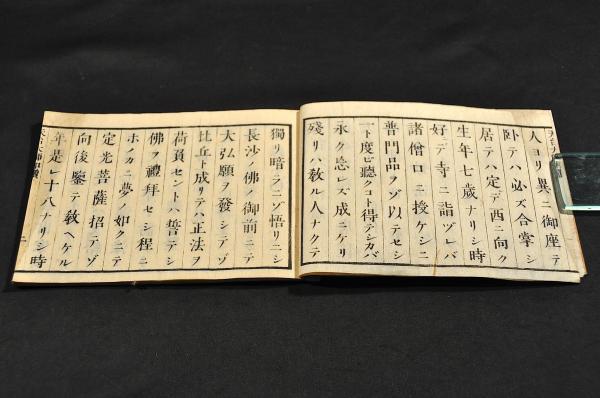 人ヨリ異ニ御座テ
臥テハ必ズ合掌シ
居テハ定デ西ニ向ク
生年七歳ナリシ時
好デ寺ニ詣ヅレバ
諸僧口ニ授ケシニ
普門品ヲゾ以テセシ
一ト度ビ聽クコト得テシカバ
永ク忘レズ成ニケリ
殘リハ教ル人ナクテ
獨リ暗ラニゾ悟リニシ
長沙ノ佛ノ御前ニテ
大弘願ヲ發シテゾ
比丘ト成リテハ正法ヲ
荷負セントハ誓テシ
佛ヲ禮拜セシ程ニ
ホノカニ夢ノ如クニテ
定光菩薩招テゾ
向後鑒テ教ヘケル
年是レ十八ナリシ時